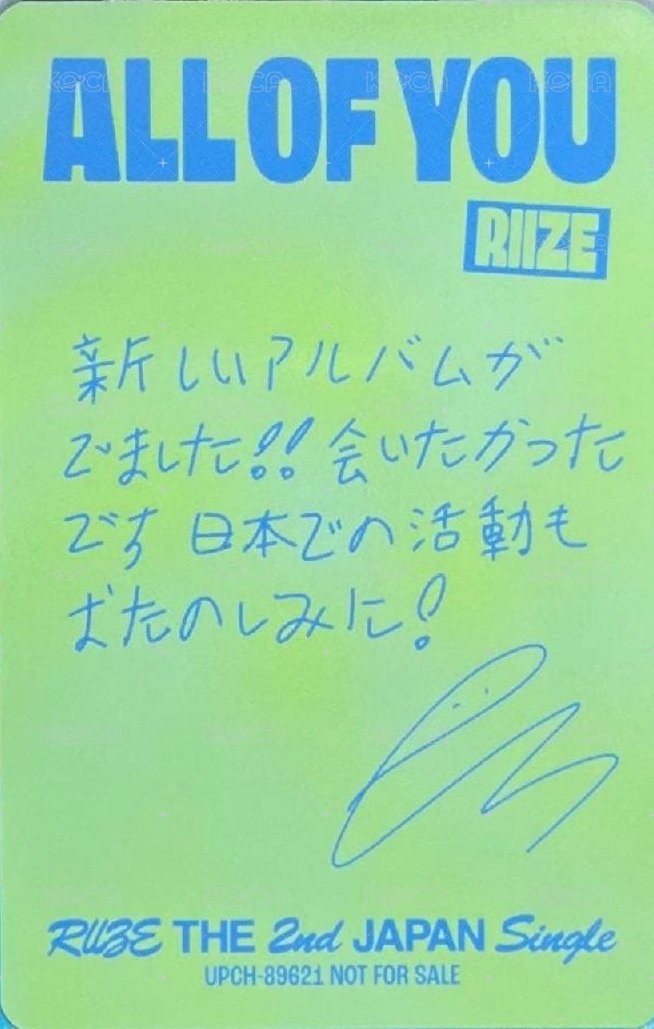 ALL OF YOU
RIIZE
新しいアルバムが
でました!! 会いたかった
です 日本での活動も
おたのしみに!
RIIZE THE 2nd JAPAN Single
UPCH-89621 NOT FOR SALE
KOCA